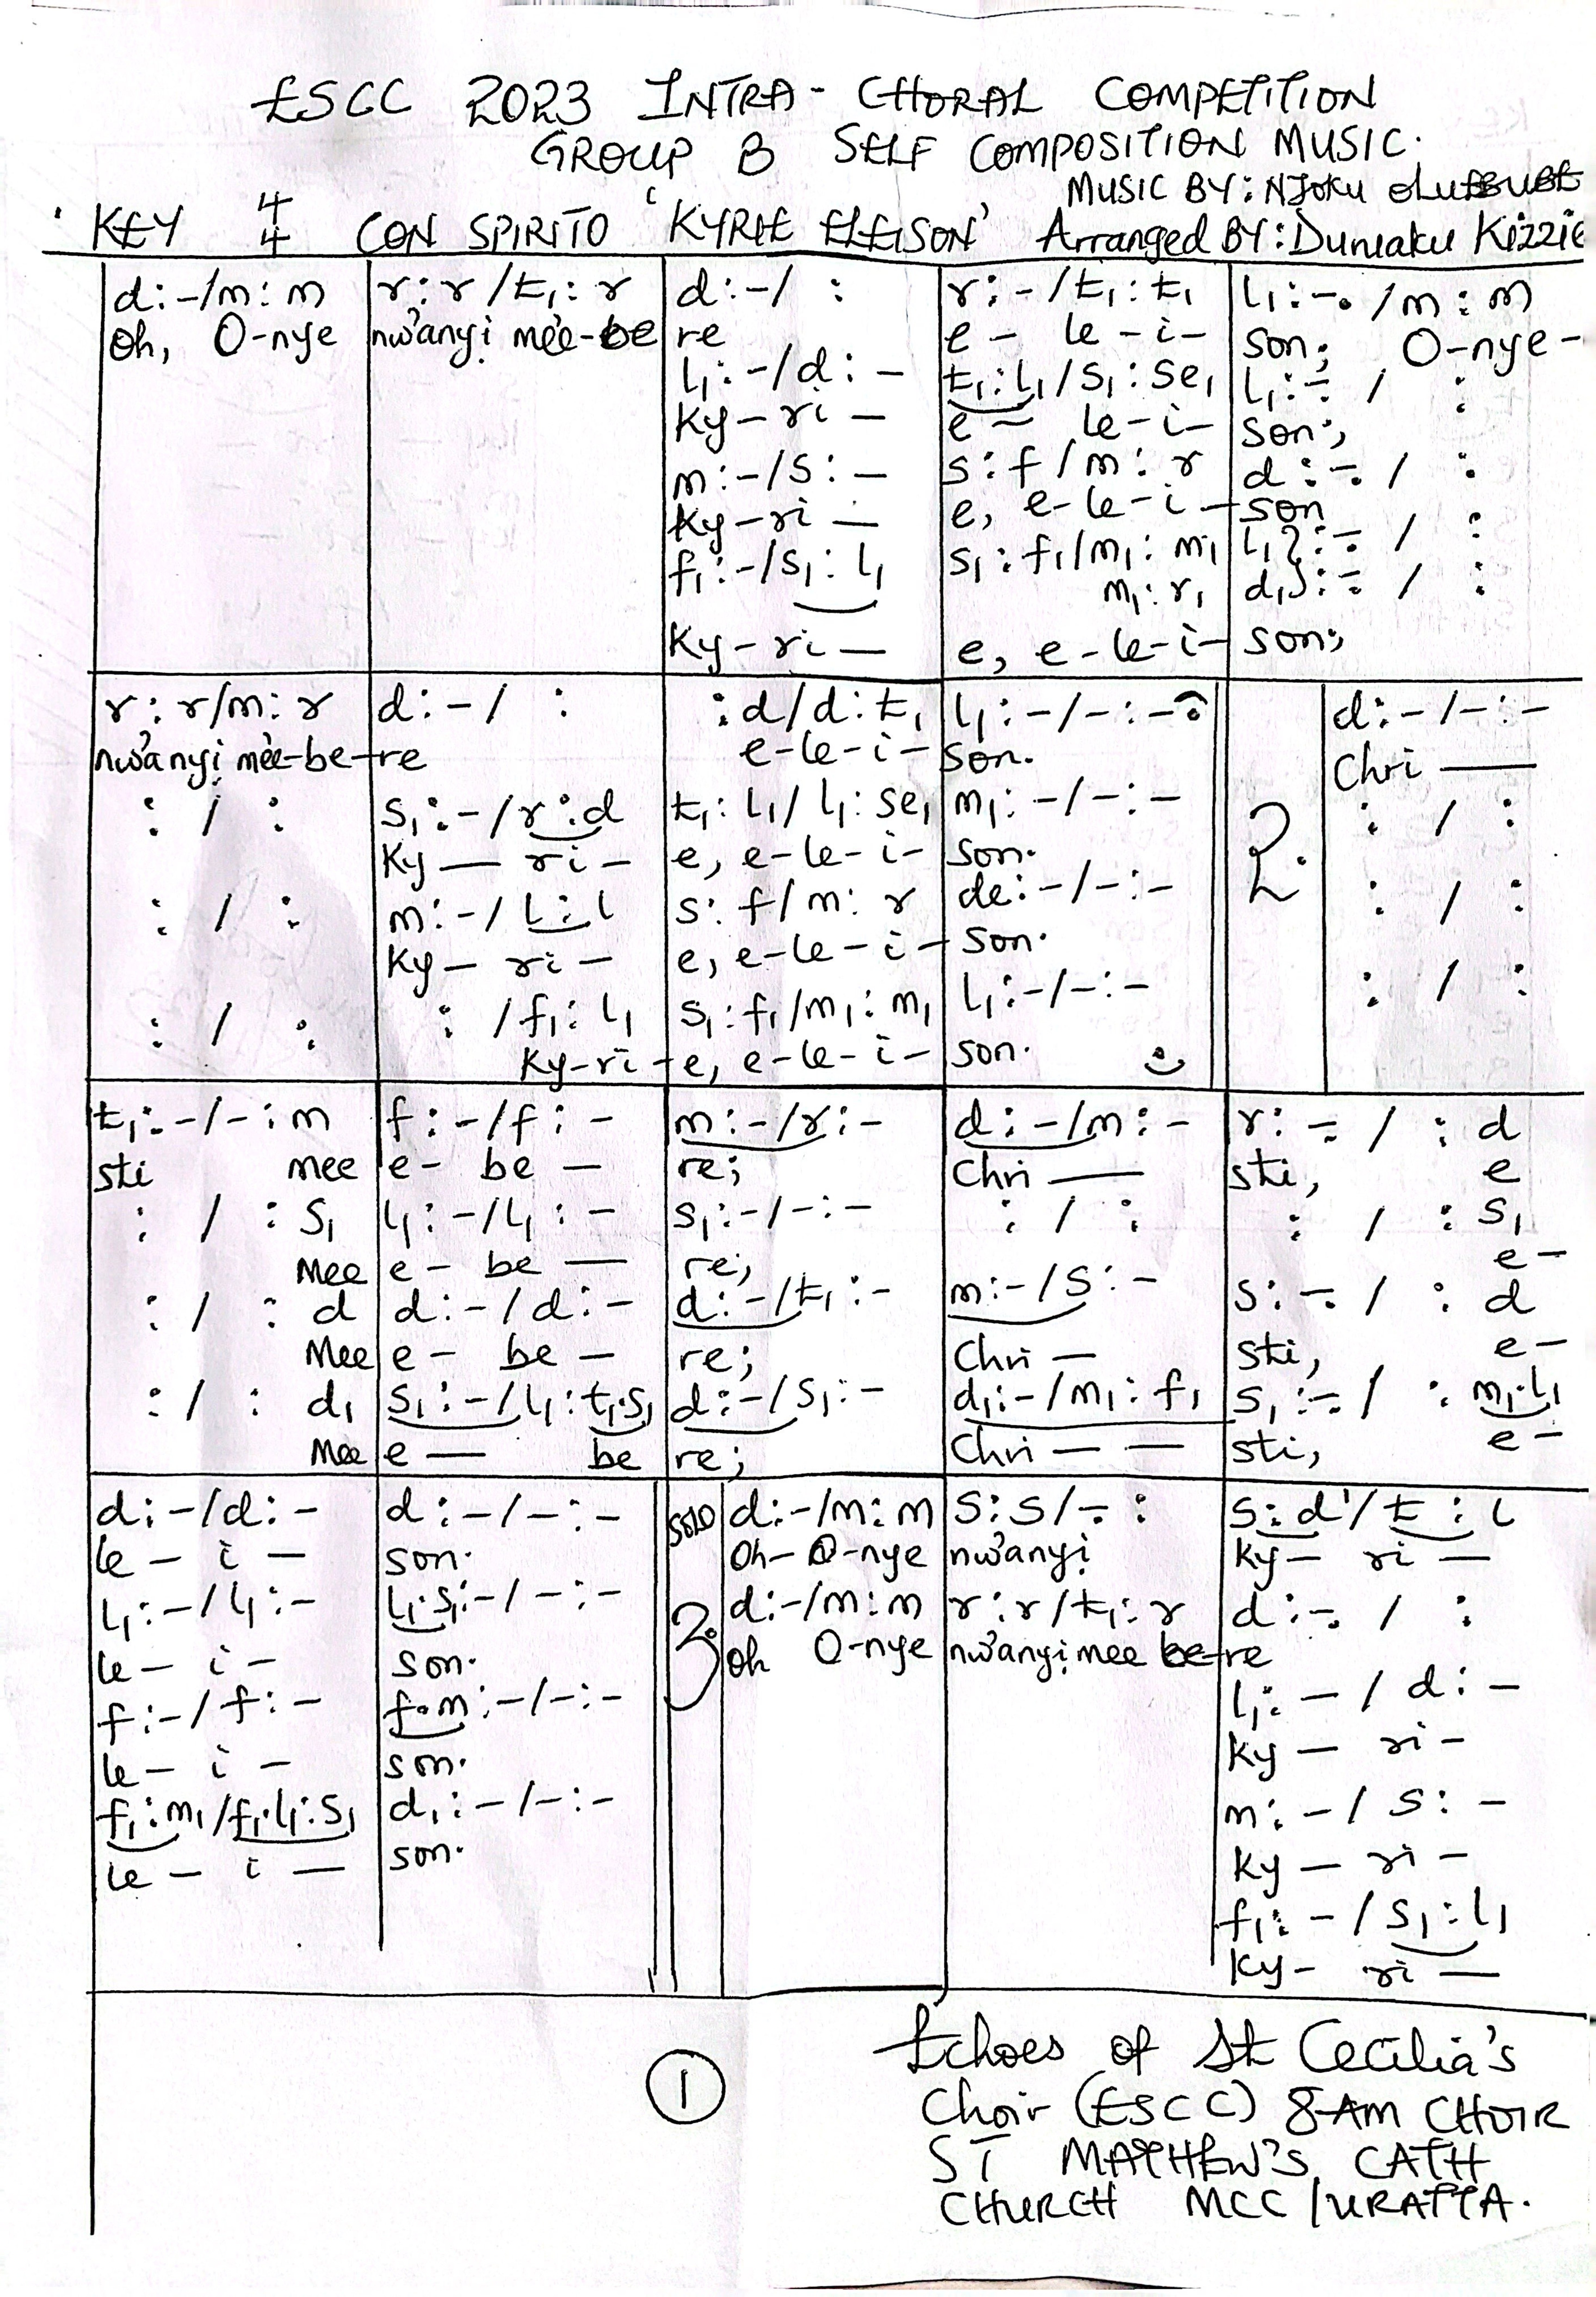 ESCC 2023 INTRA-CHORAL COMPETITION
GROUP B SELF COMPOSITION MUSIC.
MUSIC BY: NJOKU
KEY 4/4 CON SPIRITO 'KYRIE ELEISON' Arranged BY: Duruaku Kizzie
d:-/m:m r:r/t₁:r d:-/ : r:-/t₁:t₁ l₁:-./m:m
Oh, O-nye nwanyi mee-be re e - le-i- son; O-nye-
l₁:-/d:- t₁:l₁/s₁:se₁ l₁:-./ :
Ky-ri — e - le-i- son;
m:-/s:- s:f/m:r d:-./ :
Ky-ri — e, e-le-i-son
f₁:-/s₁:l₁ s₁:f₁/m₁:m₁ l₁}:-./ :
m₁:r₁ d₁}:-./ :
Ky-ri — e, e-le-i- son;
r:r/m:r d:-/ : :d/d:t₁ l₁:-/-:- d:-/-:-
nwanyi mee-be-re e-le-i-son. Chri —
: / : s₁:-/r:d t₁:l₁/l₁:se₁ m₁:-/-:- 2. : / :
Ky — ri - e, e-le-i- son.
: / : m:-/l:l s:f/m:r de:-/-:- : / :
Ky - ri - e, e-le-i-son.
: / : : /f₁:l₁ s₁:f₁/m₁:m₁ l₁:-/-:- : / :
Ky-ri-e, e-le-i- son.
t₁:-/-:m f:-/f:- m:-/r:- d:-/m:- r:-./ :d
sti mee e- be — re; Chri — sti, e
: / :s₁ l₁:-/l₁:- s₁:-/-:- : / : : / :s₁
Mee e - be — re; e-
: / :d d:-/d:- d:-/t₁:- m:-/s:- s:-./ :d
Mee e - be — re; Chri — sti, e-
: / :d₁ s₁:-/l₁:t₁.s₁ d:-/s₁:- d₁:-/m₁:f₁ s₁:-./ :m₁.l₁
Mee e — be re; Chri — — sti, e-
d:-/d:- d:-/-:- SOLO d:-/m:m s:s/-. : s:d'/t:l
le - i — son. Oh- O-nye nwanyi Ky — ri —
l₁:-/l₁:- l₁.s₁:-/-:- 3. d:-/m:m r:r/t₁:r d:-./ :
le - i - son. Oh O-nye nwanyi mee be-re
f:-/f:- f.m:-/-:- l₁:-/d:-
le - i - son. Ky — ri -
f₁:m₁/f₁.l₁:s₁ d₁:-/-:- m:-/s:-
le - i — son. Ky — ri -
f₁:-/s₁:l₁
Ky- ri —
Echoes of St Cecilia's
1 Choir (ESCC) 8AM CHOIR
ST MATTHEW'S CATH
CHURCH MCC/URATTA.